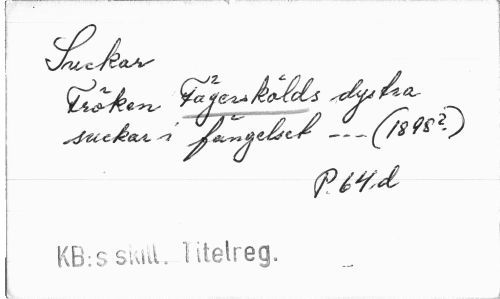 Suckar
Fröken Fägerskölds dystra
suckar i fängelset --- (1898?)
P. 64.d
KB:s skill. Titelreg.